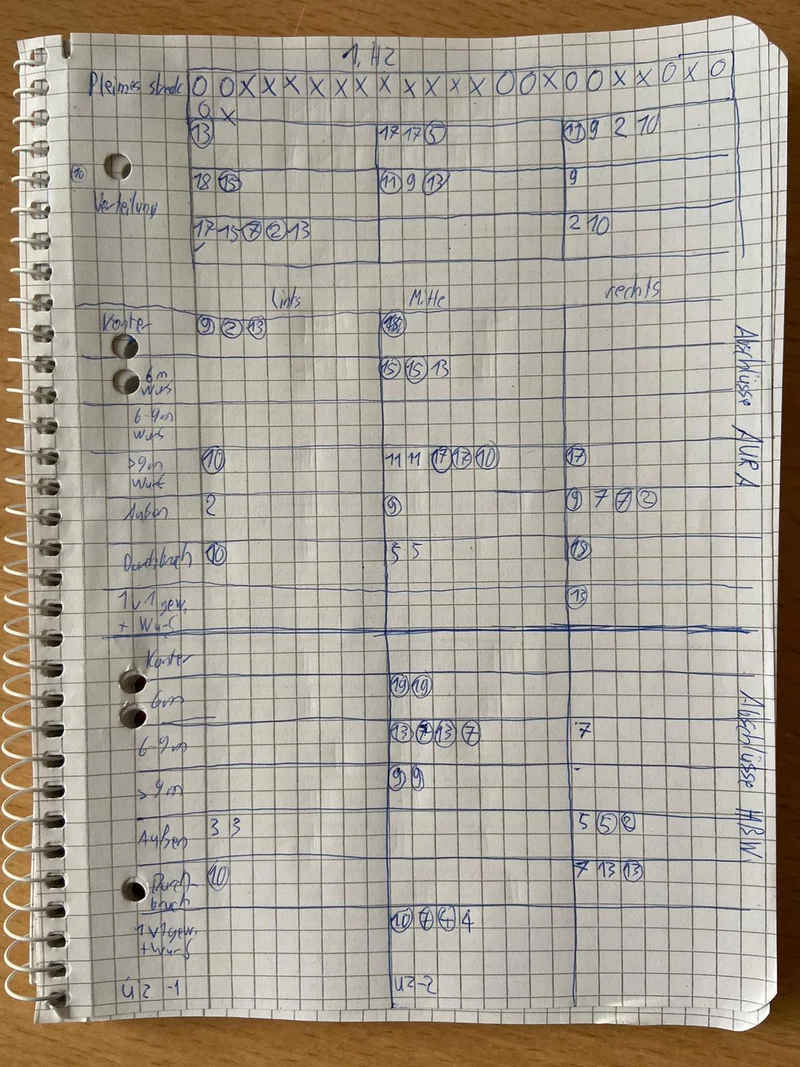 1. HZ
O O X X X X X X X X X X X O O X O O X X O X O
O X
13 17 17 5 11 9 2 10
18 15 11 9 13 9
Verteilung
17 15 7 2 13 2 10
links Mitte rechts
Konter 9 2 13 18
6m Wurf 15 15 13
6-9m Wurf
>9m Wurf 10 11 11 17 17 10 17
Außen 2 9 9 7 7 2
Durchbruch 10 5 5 18
1v1 gew. + Wurf 13
Abschlüsse AURA
Konter
6m 19 19
6-9m 13 7 13 7 7
>9m 9 9
Außen 3 3 5 5 2
Durchbruch 10 7 13 13
1v1 gew. + Wurf 10 7 4 4
ÜZ -1 ÜZ -2
Abschlüsse HBW